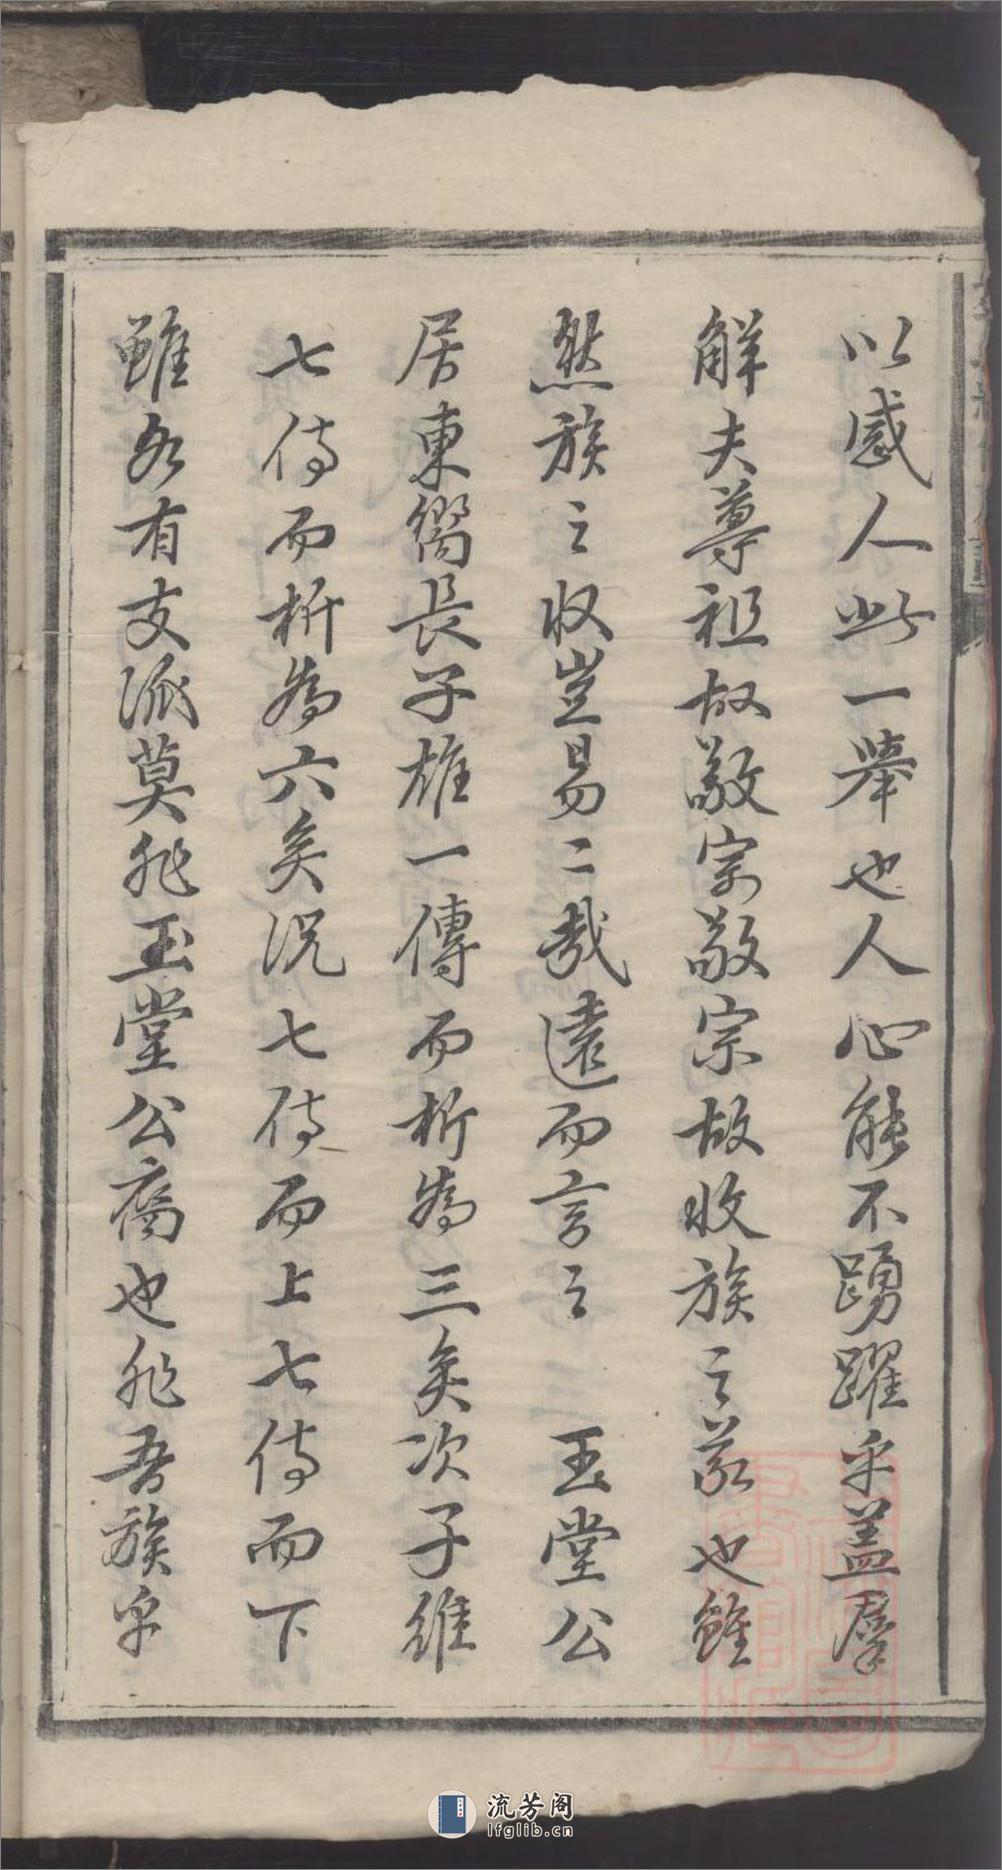 以感人此一舉也人心能不踴躍乎盖羣
解夫尊祖故敬宗敬宗故收族之義也雖
然族之收豈易二哉遠而言之 玉堂公
居東嚮長子雄一傳而析為三矣次子維
七傳而析為六矣況七傳而上七傳而下
雖各有支派莫非玉堂公裔也非吾族乎
流芳阁
lfglib.cn